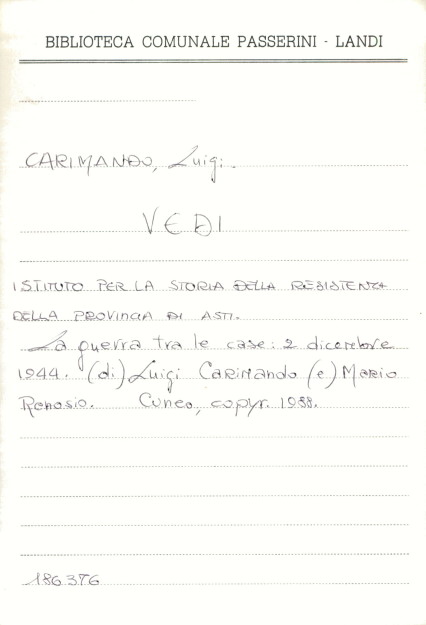 BIBLIOTECA COMUNALE PASSERINI - LANDI
CARIMANDO, Luigi.
VEDI
ISTITUTO PER LA STORIA DELLA RESISTENZA
DELLA PROVINCIA DI ASTI.
La guerra tra le case: 2 dicembre
1944. (di) Luigi Carimando (e) Mario
Renosio. Cuneo, copyr. 1988.
186.376